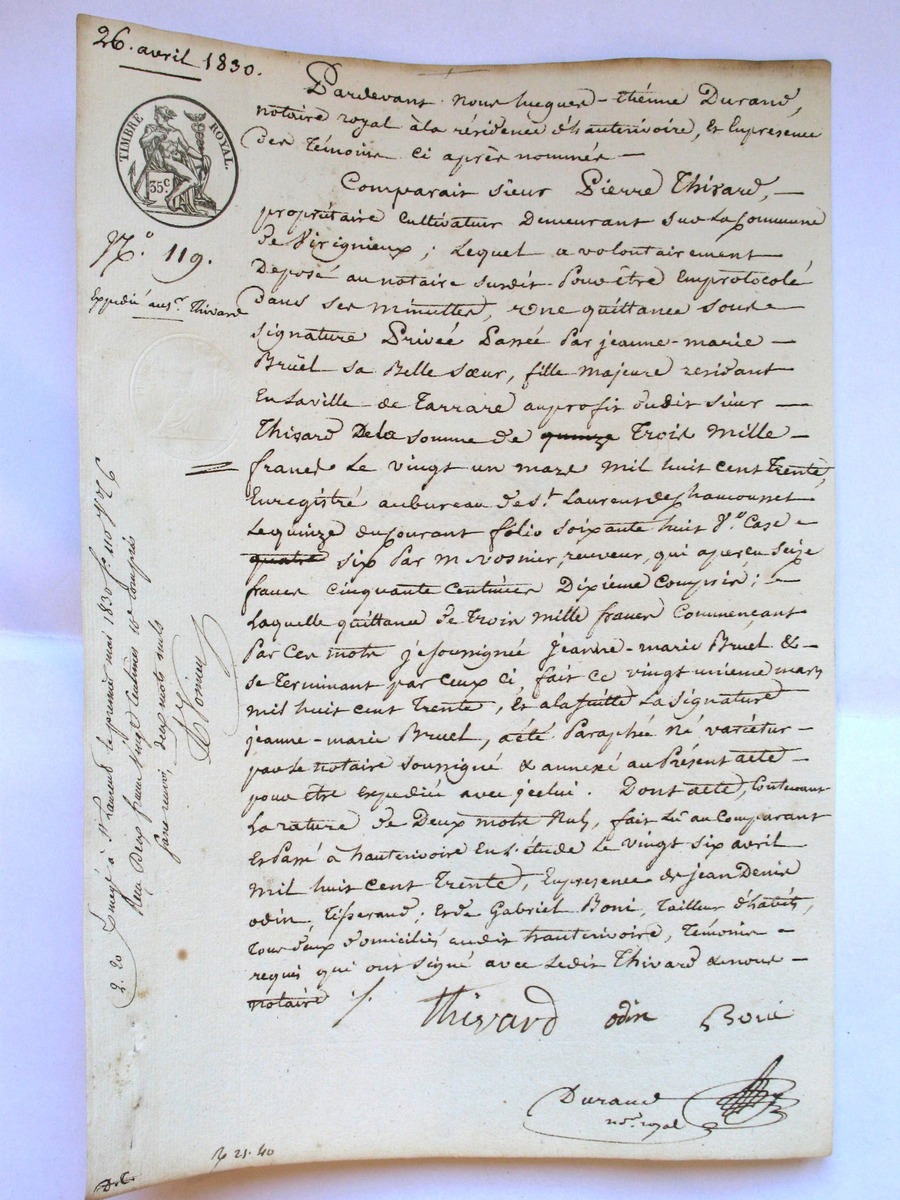 26. avril 1830.
TIMBRE ROYAL.
35c
N.° 119.
Expédié au sr. Thivard
Pardevant nous hugues-thême Durand,
notaire royal à la résidence d'hauterivoire, et en présence
des témoins ci après nommés —
Comparait sieur Pierre Thivard, —
propriétaire cultivateur demeurant sur la commune
de Virignieux ; lequel a volontairement
déposé au notaire susdit pour être emprotocolé
dans ses minuttes, une quittance sous —
signature privée passée par jeanne-marie —
Bruël sa belle sœur, fille majeure residant
en la ville de Tarrare au profit dudit sieur —
Thivard de la somme de quinze trois mille —
francs le vingt un mars mil huit cent trente,
Enregistré au bureau de St. Laurent de Chamousset
le quinze du courant folio soixante huit v.° case —
quatre six par m. Vosnier, receveur, qui a perçu seize
francs cinquante centimes dixième compris ; —
laquelle quittance de trois mille francs commençant
par ces mots je soussignée jeanne-marie Bruel &
se terminant par ceux ci, fait ce vingt unieme mars
mil huit cent trente, et à la suitte la signature
jeanne-marie Bruel, a été paraphée né variétur —
par le notaire soussigné & annexé au présent acte —
pour être expédiée avec jcelui. Dont acte, contenant
la rature de deux mots nuls, fait lu au comparant
et passé à hauterivoire en l'étude le vingt six avril
mil huit cent trente, en présence de jean Denis
odin, tisserand ; et de Gabriel Boni, tailleur d'habits,
tous deux domiciliés audit hauterivoire, témoins —
requis qui ont signé avec ledit Thivard & nous —
notaire ./.
Thivard odin Boni
Durand
not. royal
Enregé à St. Laurent le premier mai 1830 f.° 110 v.° c. 6
Reçu deux francs vingt centimes 10e compris
sans renvoi, deux mots nuls
Vosnier
2. 20
21. 40
D.C.